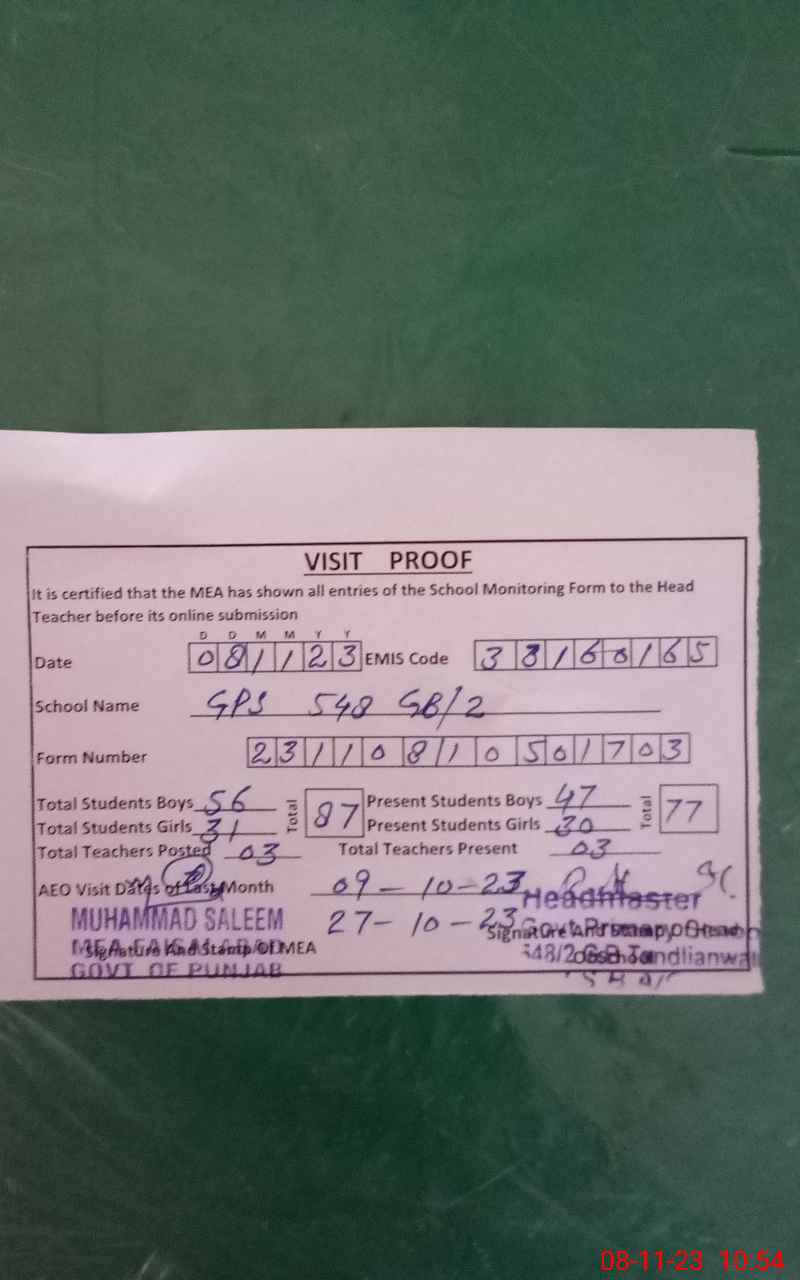 VISIT PROOF
It is certified that the MEA has shown all entries of the School Monitoring Form to the Head
Teacher before its online submission
D D M M Y Y
Date 081123 EMIS Code 33160165
School Name GPS 548 GB/2
Form Number 23110810501703
Total Students Boys 56 Total 87 Present Students Boys 47 Total 77
Total Students Girls 31 Present Students Girls 30
Total Teachers Posted 03 Total Teachers Present 03
AEO Visit Dates of Last Month 09-10-23
27-10-23
Headmaster
MUHAMMAD SALEEM
Govt Primary
MEA FAISALABAD
Signature And Stamp Of MEA
Signature And Stamp Of Head
548/2 G.B Tandlianwala
GOVT OF PUNJAB
08-11-23 10:54